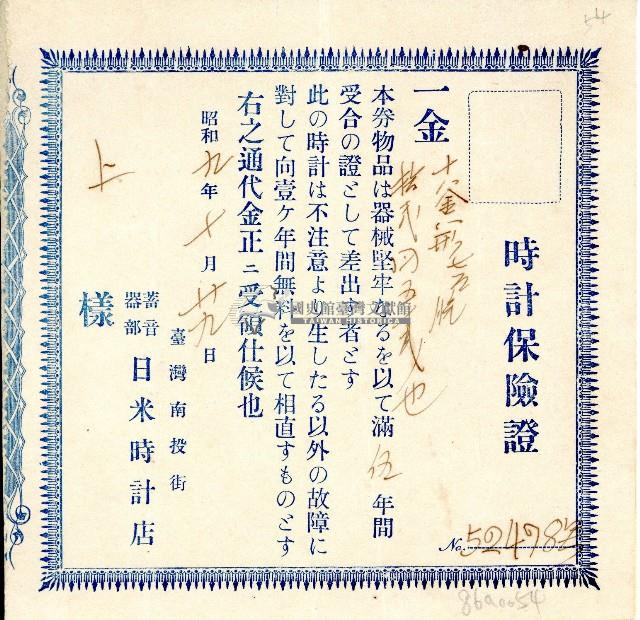 54
時計保險證
No. 52478
一金
拾弍円五十弍也
本券物品は器械堅牢なるを以て滿伍年間
受合の證として差出す者とす
此の時計は不注意より生したる以外の故障に
對して向壹ケ年間無料を以て相直すものとす
右之通代金正ニ受領仕候也
昭和九年七月廿九日
臺灣南投街
蓄音器部 日米時計店
上
樣
國史館臺灣文獻館
TAIWAN HISTORICA
86a0054